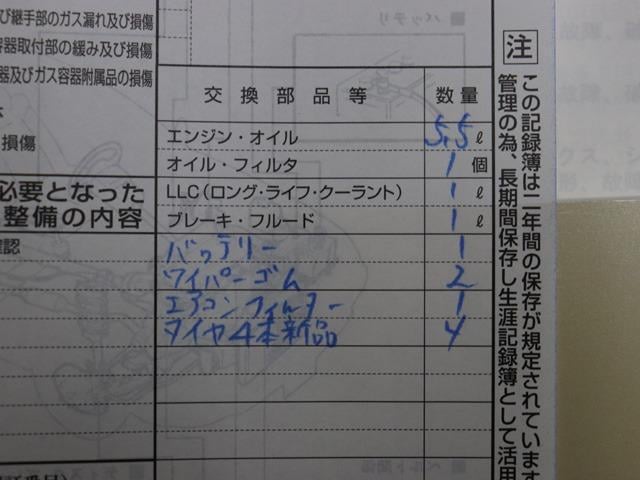 び継手部のガス漏れ及び損傷
容器取付部の緩み及び損傷
器及びガス容器附属品の損傷
損傷
必要となった
整備の内容
確認
■ バッテリ
交換部品等 数量
エンジン・オイル 5.5 ℓ
オイル・フィルタ 1 個
LLC(ロング・ライフ・クーラント) 1 ℓ
ブレーキ・フルード 1 ℓ
バッテリー 1
ワイパーゴム 2
エアコンフィルター 1
タイヤ4本新品 4
注
この記録簿は二年間の保存が規定されています
管理の為、長期間保存し生涯記録簿として活用